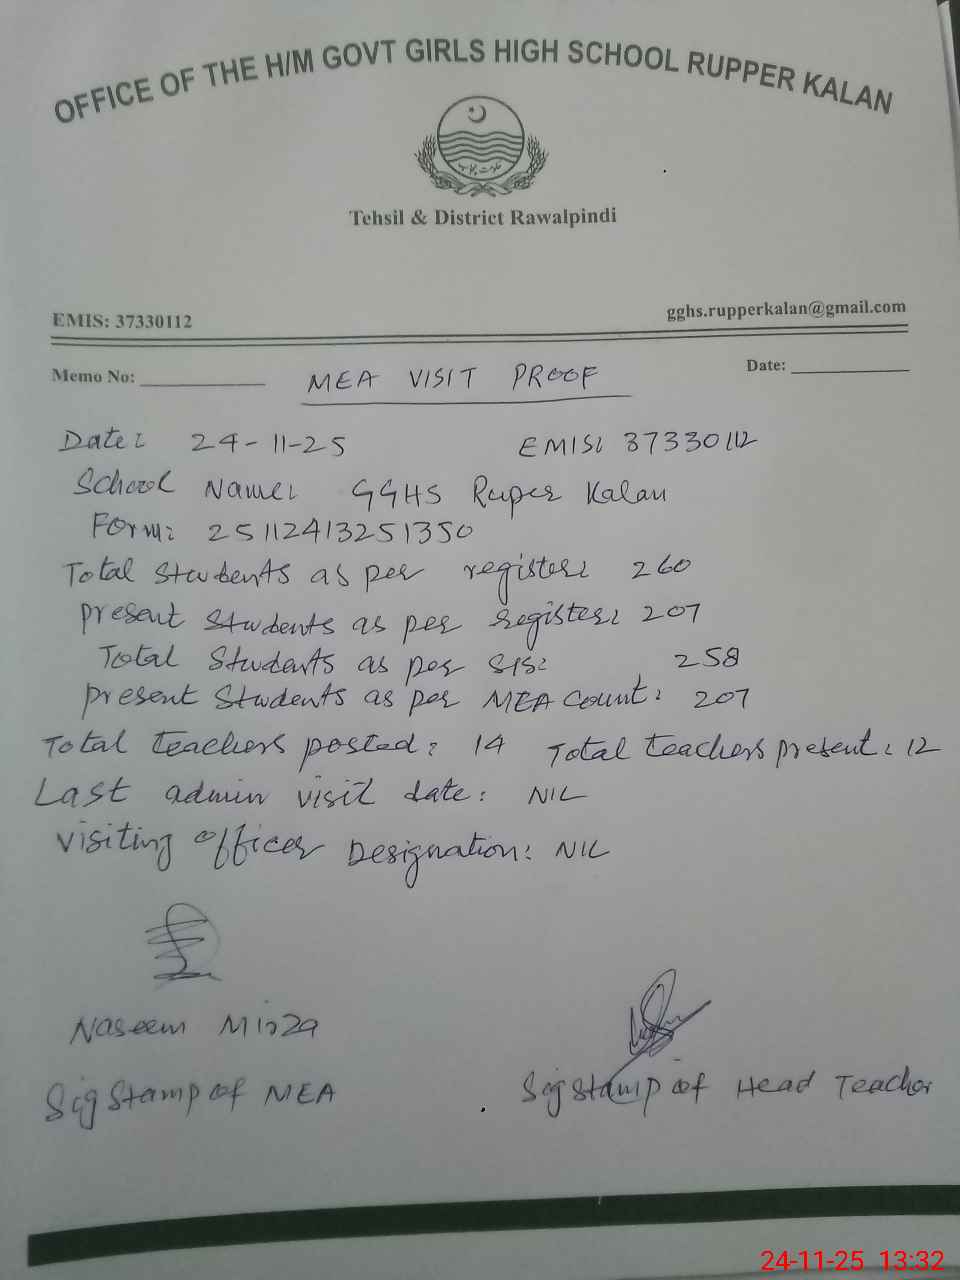 OFFICE OF THE H/M GOVT GIRLS HIGH SCHOOL RUPPER KALAN
حکومت پنجاب
Tehsil & District Rawalpindi
EMIS: 37330112 gghs.rupperkalan@gmail.com
Memo No: MEA VISIT PROOF Date:
Date: 24-11-25 EMIS: 37330112
School Name: GGHS Ruper Kalan
Form: 25112413251350
Total Students as per register: 260
Present Students as per register: 207
Total Students as per SIS: 258
Present Students as per MEA Count: 207
Total teachers posted: 14 Total teachers present: 12
Last admin visit date: NIL
Visiting officer Designation: NIL
Naseem Mirza
Sig Stamp of MEA Sig Stamp of Head Teacher
24-11-25 13:32